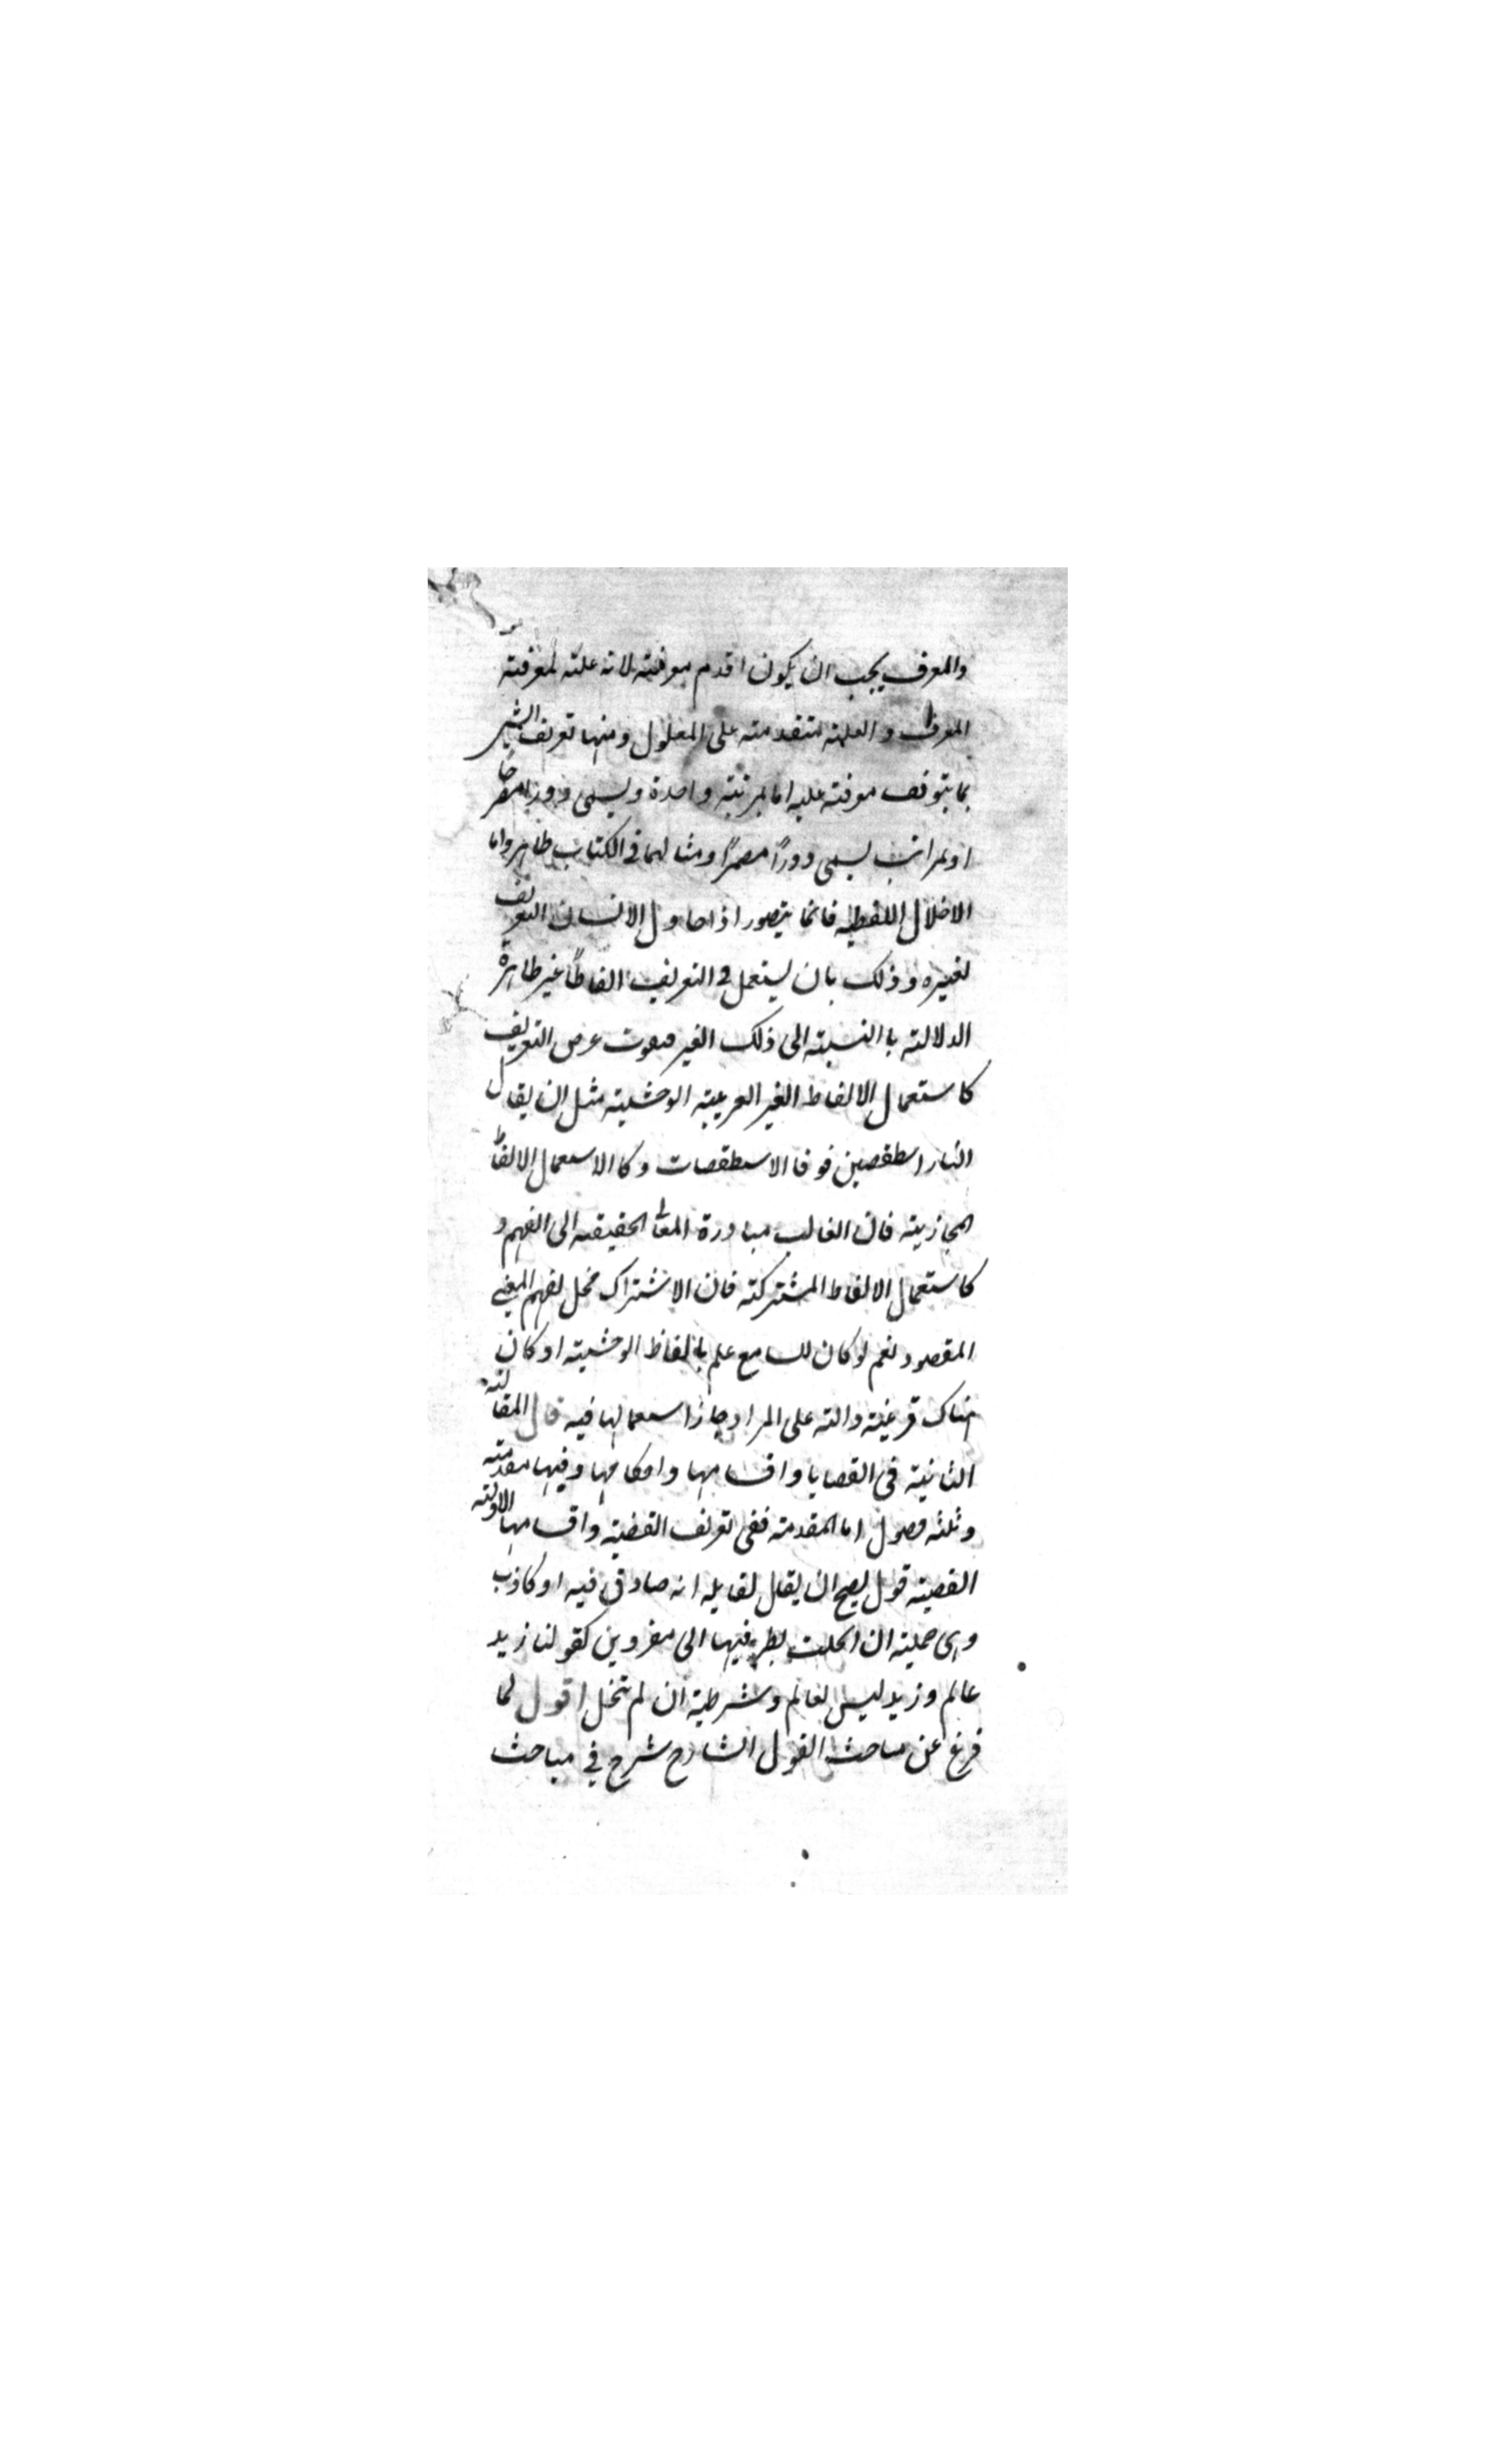 والمعرف يجب ان يكون اقدم معرفته لانه علته لمعرفته
المعرف والعلته متقدمته على المعلول ومنها تعريف الشى
بما يتوقف معرفته عليه اما بمرتبته واحدة ويسمى دورا مصرحا
او بمراتب يسمى دورًا مضمرًا ومثالهما فى الكتاب ظاهر واما
الاخلال اللفظيه فانما يتصور اذا حاول الانسان التعريف
لغيره وذلك بان يستعمل فى التعريف الفاظًا غير ظاهرة
الدلالته باالنسبته الى ذلك الغير فيفوت غرض التعريف
كاستعمال الالفاظ الغير العربيته الوحشيته مثل ان يقال
النار اسطقصين فوفا الاسطقصات وكاالاستعمال الالفاظ
المجازيته فان الغالب مبادرة المعانى الحقيقيه الى الفهم و
كاستعمال الالفاظ المشتركته فان الاشتراك مخل لفهم المعنى
المقصود نعم لو كان للسامع علم بالفاظ الوحشيته او كان
هناك قرينته دالته على المراد جاز استعمالها فيه قال المقالته
الثانيته فى القضايا واقسامها واحكامها وفيها مقدمته
وثلثه فصول اما المقدمته ففى تعريف القضيته واقسامها الاوليته
القضيته قول يصح ان يقال لقايله انه صادق فيه او كاذب
وهى حمليته ان انحلت بطرفيها الى مفردين كقولنا زيد
عالم وزيد ليس بعالم وشرطيته ان لم تنحل اقول لما
فرغ عن مباحث القول الشارح شرح فى مباحث